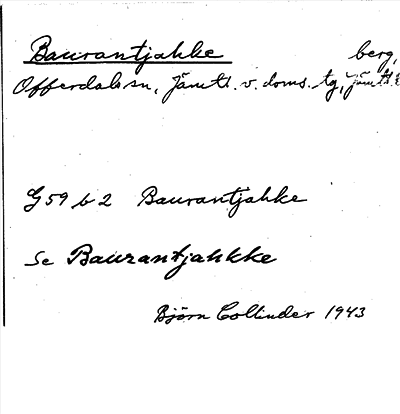 Baurantjahke berg,
Offerdals sn, Jämtl. v. doms. tg, Jämtl. l
G 59 b 2 Baurantjahke
Se Baurantjahkke
Björn Collinder 1943